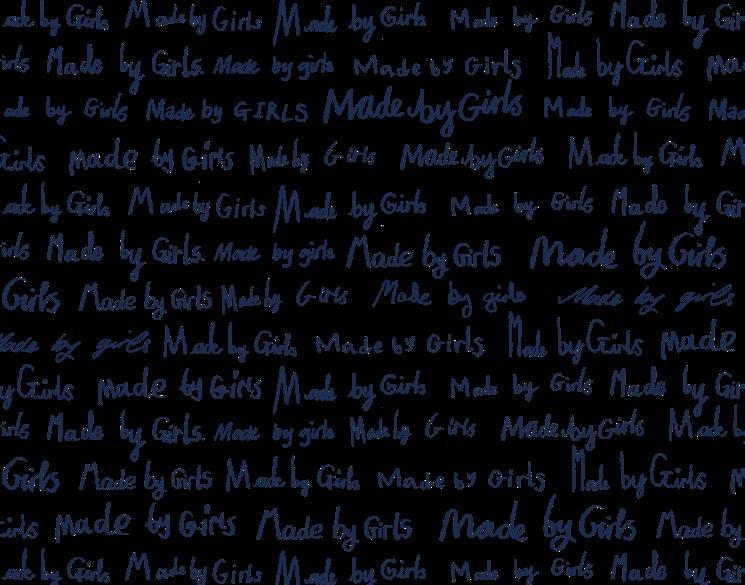 Made by Girls Made by Girls Made by Girls Made by Girls Made by Gir
irls Made by Girls Made by girls Made by Girls Made by Girls Ma
ade by Girls Made by GIRLS Made by Girls Made by Girls Mad
Girls Made by Girls Made by Girls Made by Girls Made by Girls M
ade by Girls Made by Girls Made by Girls Made by Girls Made by Gir
irls Made by Girls Made by girls Made by Girls Made by Girls
Girls Made by Girls Made by Girls Made by girls Made by girls
Made by girls Made by Girls Made by Girls Made by Girls Made
y Girls Made by Girls Made by Girls Made by Girls Made by Gir
irls Made by Girls Made by girls Made by Girls Made by Girls Made b
Girls Made by Girls Made by Girls Made by Girls Made by Girls M
irls Made by Girls Made by Girls Made by Girls Made by
ade by Girls Made by Girls Made by Girls Made by Girls Made by Gir